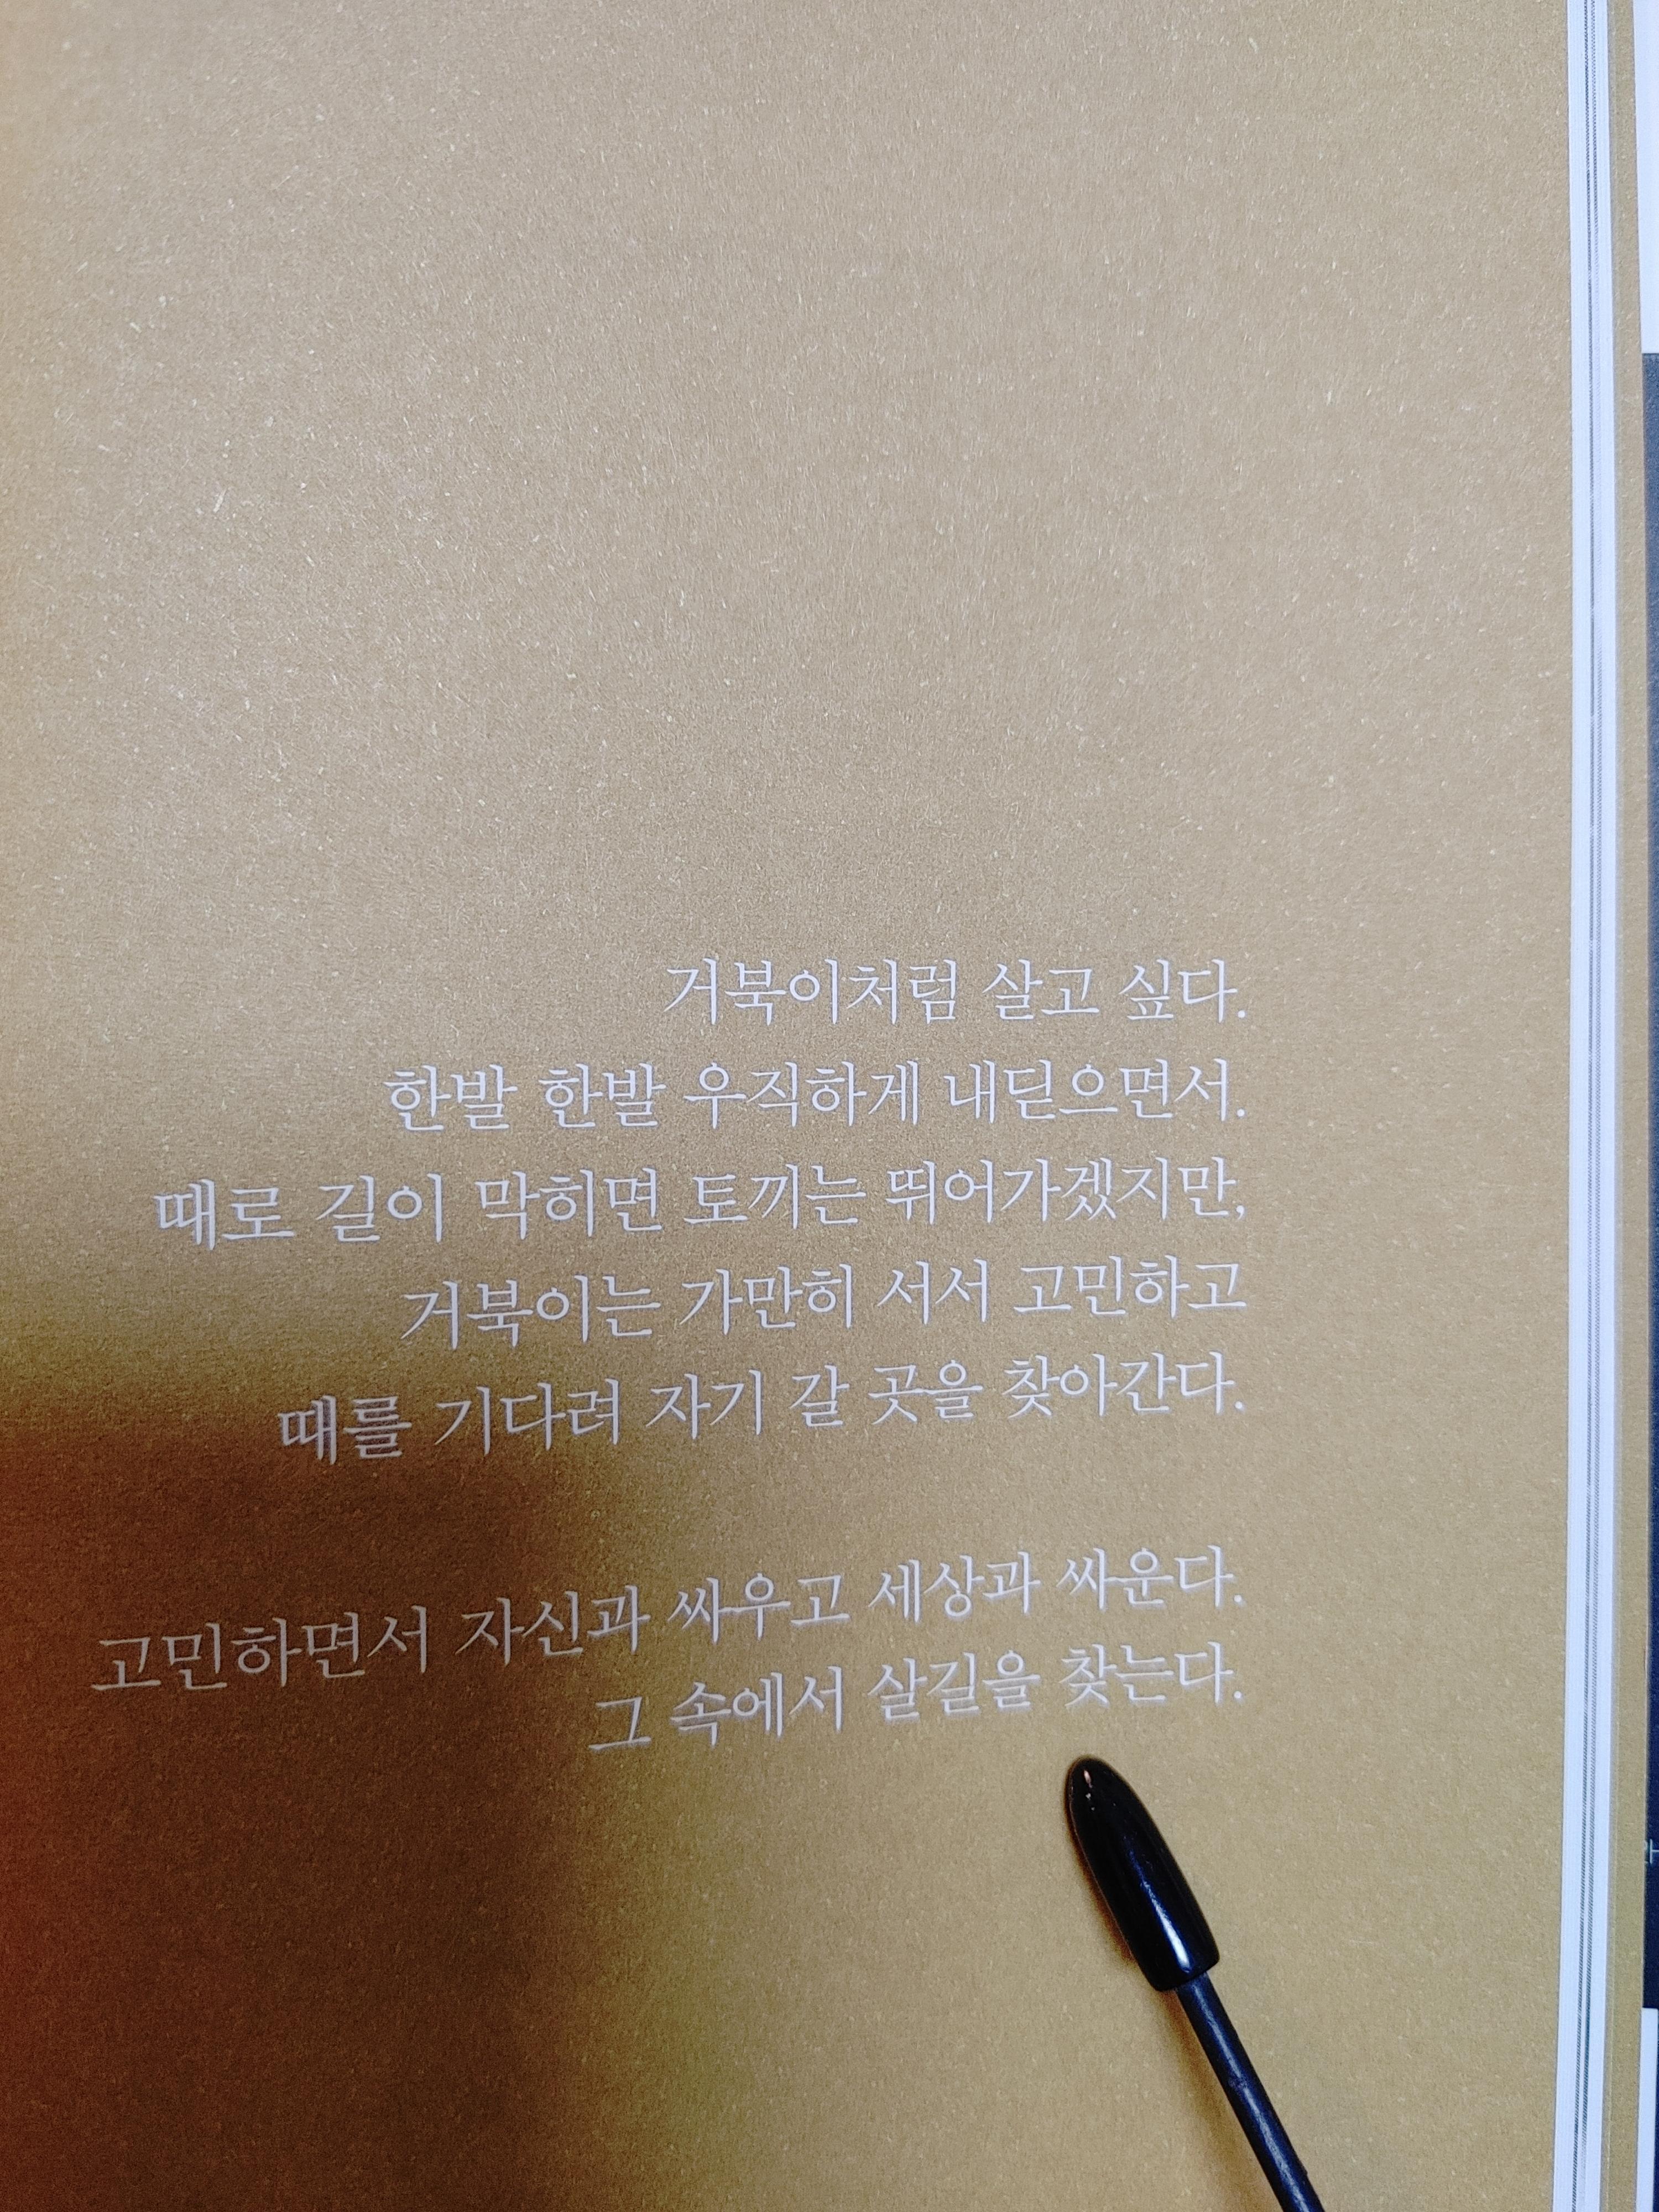 거북이처럼 살고 싶다.
한발 한발 우직하게 내딛으면서.
때로 길이 막히면 토끼는 뛰어가겠지만,
거북이는 가만히 서서 고민하고
때를 기다려 자기 갈 곳을 찾아간다.
고민하면서 자신과 싸우고 세상과 싸운다.
그 속에서 살길을 찾는다.